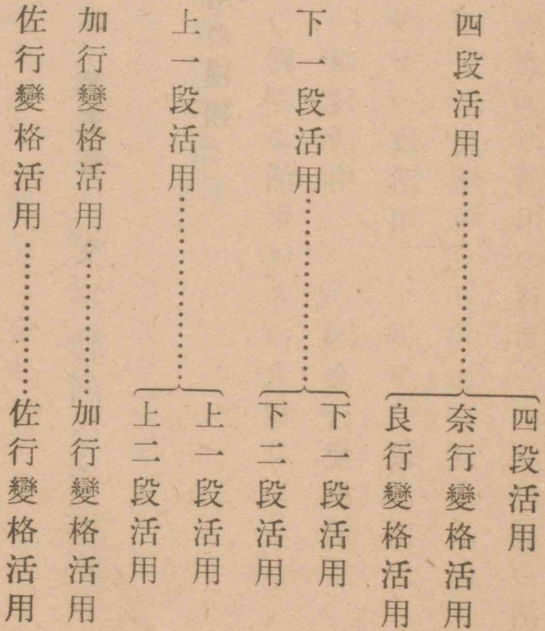 四段活用……………四段活用
奈行變格活用
良行變格活用
下一段活用……………下一段活用
下二段活用
上一段活用……………上一段活用
上二段活用
加行變格活用……………加行變格活用
佐行變格活用……………佐行變格活用